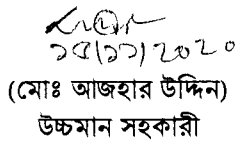 ১৫/১১/2020
(মোঃ আজহার উদ্দিন)
উচ্চমান সহকারী